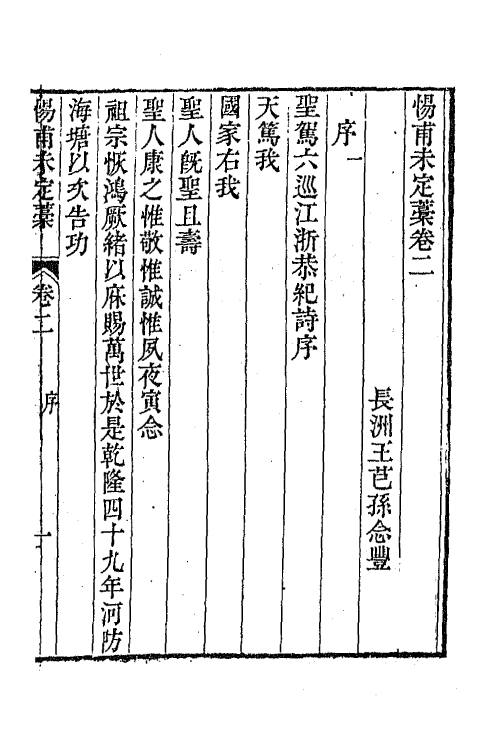 惕甫未定藁卷二
長洲王芑孫念豐
序一
聖駕六巡江浙恭紀詩序
天篤我
國家右我
聖人旣聖且壽
聖人康之惟敬惟誠惟夙夜寅念
祖宗恢鴻厥緒以庥賜萬世於是乾隆四十九年河防
海塘以次告功
惕甫未定藁 卷二 序 一